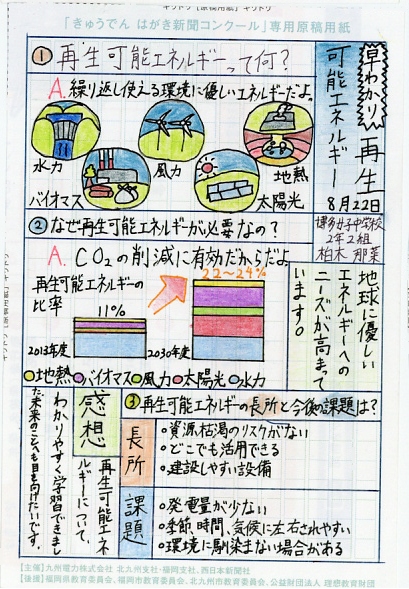 キリトリ【原稿用紙】キリトリ
「きゅうでん はがき新聞コンクール」専用原稿用紙
早わかり 再生
可能エネルギー
8月22日
博多女子中学校
2年2組
柏木 那菜
① 再生可能エネルギーって何?
A. 繰り返し使える環境に優しいエネルギーだよ。
水力
風力
地熱
バイオマス
太陽光
② なぜ再生可能エネルギーが必要なの?
A. CO2の削減に有効だからだよ
再生可能エネルギーの
比率
11%
22~24%
2013年度
2030年度
●地熱●バイオマス●風力●太陽光●水力
地球に優しい
エネルギーへの
ニーズが高まって
います。
③ 再生可能エネルギーの長所と今後の課題は?
長所
○資源枯渇のリスクがない
○どこでも活用できる
○建設しやすい設備
課題
○発電量が少ない
○季節、時間、気候に左右されやすい
○環境に馴染まない場合がある
感想
再生可能エネ
ルギーについて、
わかりやすく学習できまし
た。未来のことへも目を向けたいです。
【主催】九州電力株式会社 北九州支社・福岡支社、西日本新聞社
【後援】福岡県教育委員会、福岡市教育委員会、北九州市教育委員会、公益財団法人 理想教育財団